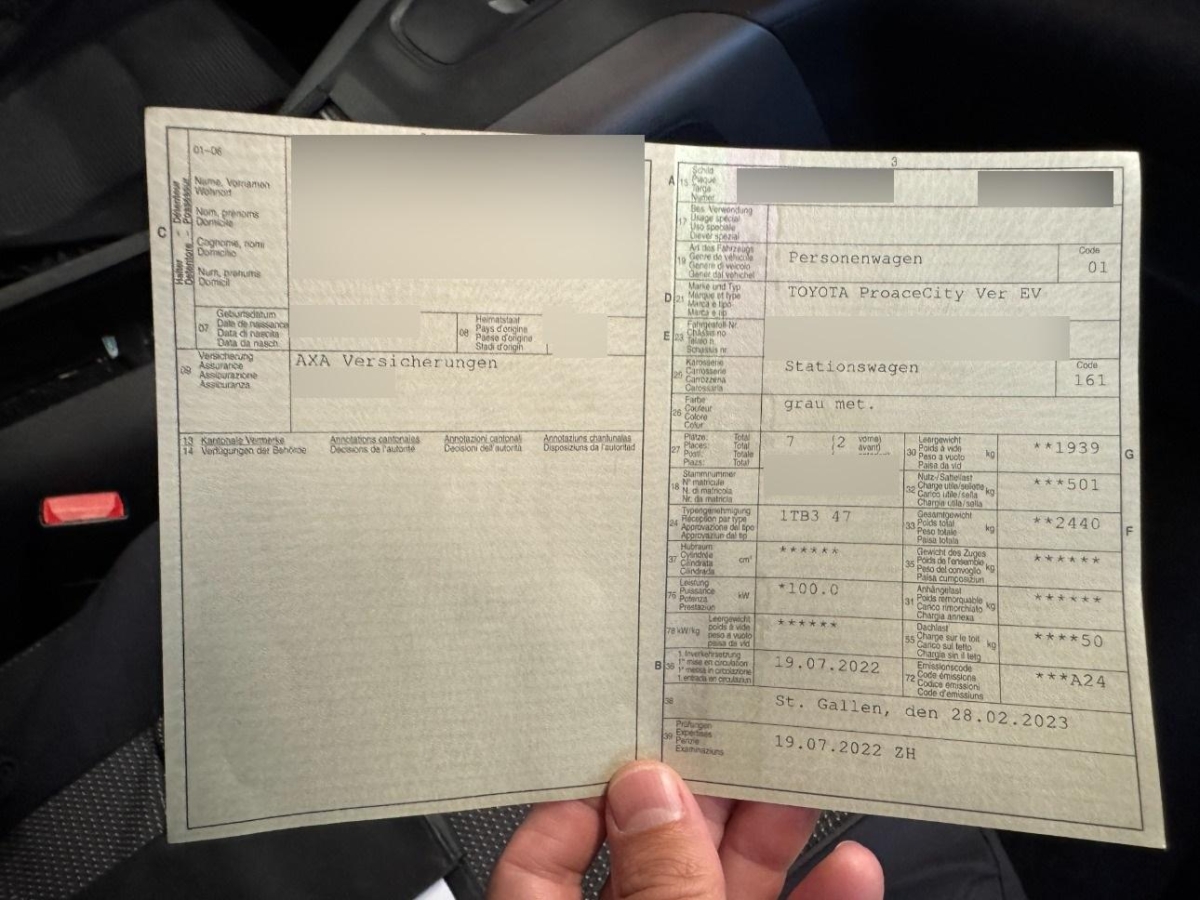 01-06
C
Halter - Détenteur
Detentore - Possessur
Name, Vornamen
Wohnort
Nom, prénoms
Domicile
Cognome, nomi
Domicilio
Num, prenums
Domicil
07
Geburtsdatum
Date de naissance
Data di nascita
Data da nasch.
08
Heimatstaat
Pays d'origine
Paese d'origine
Stadi d'origin
09
Versicherung
Assurance
Assicurazione
Assicuranza
AXA Versicherungen
13 Kantonale Vermerke Annotations cantonales Annotazioni cantonali Annotaziuns chantunalas
14 Verfügungen der Behörde Décisions de l'autorité Decisioni dell'autorità Disposiziuns da l'autoritad
3
A 15
Schild
Plaque
Targa
Numer
17
Bes. Verwendung
Usage spécial
Uso speciale
Diever spezial
19
Art des Fahrzeugs
Genre de véhicule
Genere di veicolo
Gener dal vehichel
Personenwagen
Code
01
D 21
Marke und Typ
Marque et type
Marca e tipo
Marca e tip
TOYOTA ProaceCity Ver EV
E 23
Fahrgestell-Nr.
Châssis no
Telaio n.
Schassis nr.
25
Karosserie
Carrosserie
Carrozzeria
Carossaria
Stationswagen
Code
161
26
Farbe
Couleur
Colore
Color
grau met.
27
Plätze: Total
Places: Total
Posti: Totale
Plazs: Total
7 (2 vorne)
avant)
30
Leergewicht
Poids à vide
Peso a vuoto
Paisa da vid
kg
**1939
G
18
Stammnummer
N° matricule
N. di matricola
Nr. da matricla
32
Nutz-/Sattellast
Charge utile/sellette
Carico utile/sella
Chargia utila/sella
kg
***501
24
Typengenehmigung
Réception par type
Approvazione del tipo
Approvaziun dal tip
1TB3 47
33
Gesamtgewicht
Poids total
Peso totale
Paisa totala
kg
**2440
F
37
Hubraum
Cylindrée
Cilindrata
Cilindrada
cm³
******
35
Gewicht des Zuges
Poids de l'ensemble
Peso del convoglio
Paisa cumposiziun
kg
******
76
Leistung
Puissance
Potenza
Prestaziun
kW
*100.0
31
Anhängelast
Poids remorquable
Carico rimorchiato
Chargia annexa
kg
******
78 kW/kg
Leergewicht
poids à vide
peso a vuoto
paisa da vid
******
55
Dachlast
Charge sur le toit
Carico sul tetto
Chargia sin il tetg
kg
****50
B 36
1. Inverkehrsetzung
1re mise en circulation
1a messa in circolazione
1. entrada en circulaziun
19.07.2022
72
Emissionscode
Code émissions
Codice emissioni
Code d'emissiuns
***A24
38
St. Gallen, den 28.02.2023
39
Prüfungen
Expertises
Perizie
Examinaziuns
19.07.2022 ZH